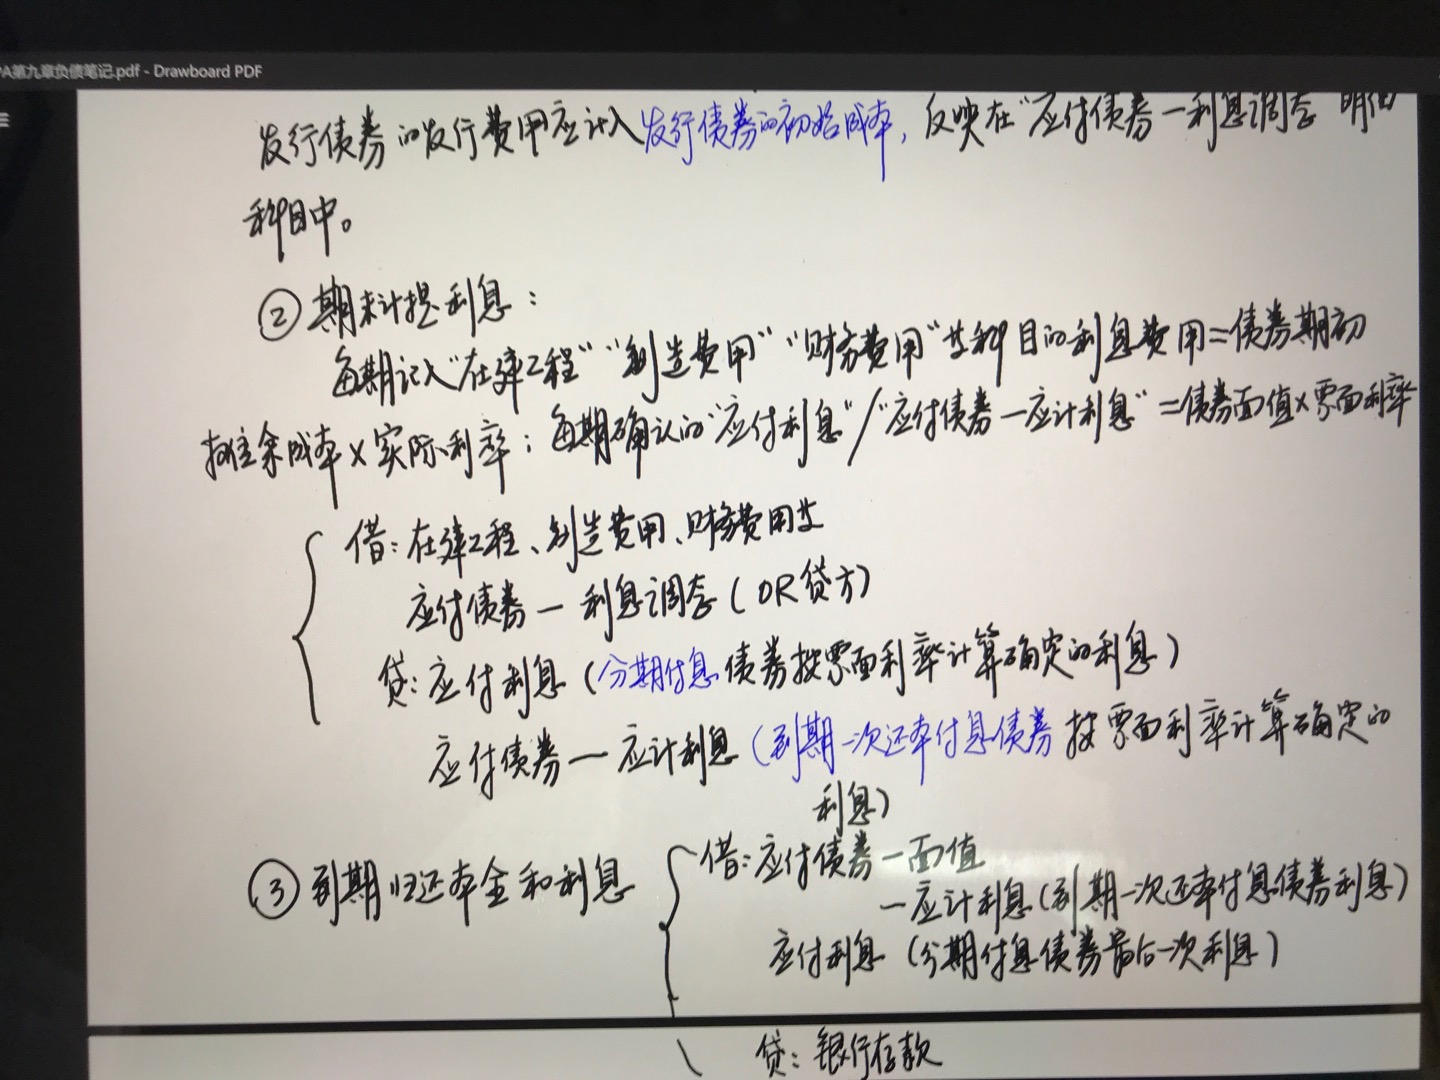 PA第九章负债笔记.pdf - Drawboard PDF
发行债券的发行费用应计入发行债券的初始成本，反映在“应付债券—利息调整”明细
科目中。
②期末计提利息：
每期记入“在建工程”“制造费用”“财务费用”等科目的利息费用=债券期初
摊余成本×实际利率；每期确认的“应付利息”/“应付债券—应计利息”=债券面值×票面利率
借：在建工程、制造费用、财务费用等
应付债券—利息调整（OR贷方）
贷：应付利息（分期付息债券按票面利率计算确定的利息）
应付债券—应计利息（到期一次还本付息债券按票面利率计算确定的
利息）
③到期归还本金和利息
借：应付债券—面值
—应计利息（到期一次还本付息债券利息）
应付利息（分期付息债券最后一次利息）
贷：银行存款